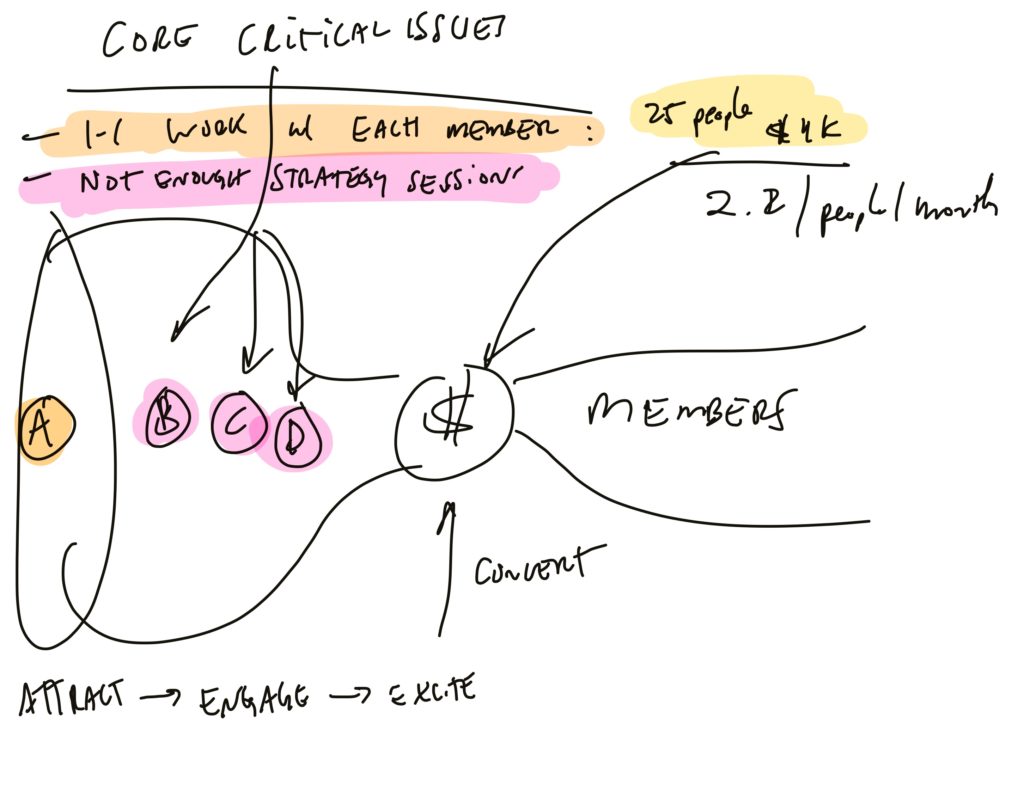 CORE CRITICAL ISSUES
- 1-1 WORK w/ EACH MEMBER :
- NOT ENOUGH STRATEGY SESSIONS
25 people
$4K
/people/month
A
B
C
D
$
MEMBERS
CONVERT
ATTRACT → ENGAGE → EXCITE